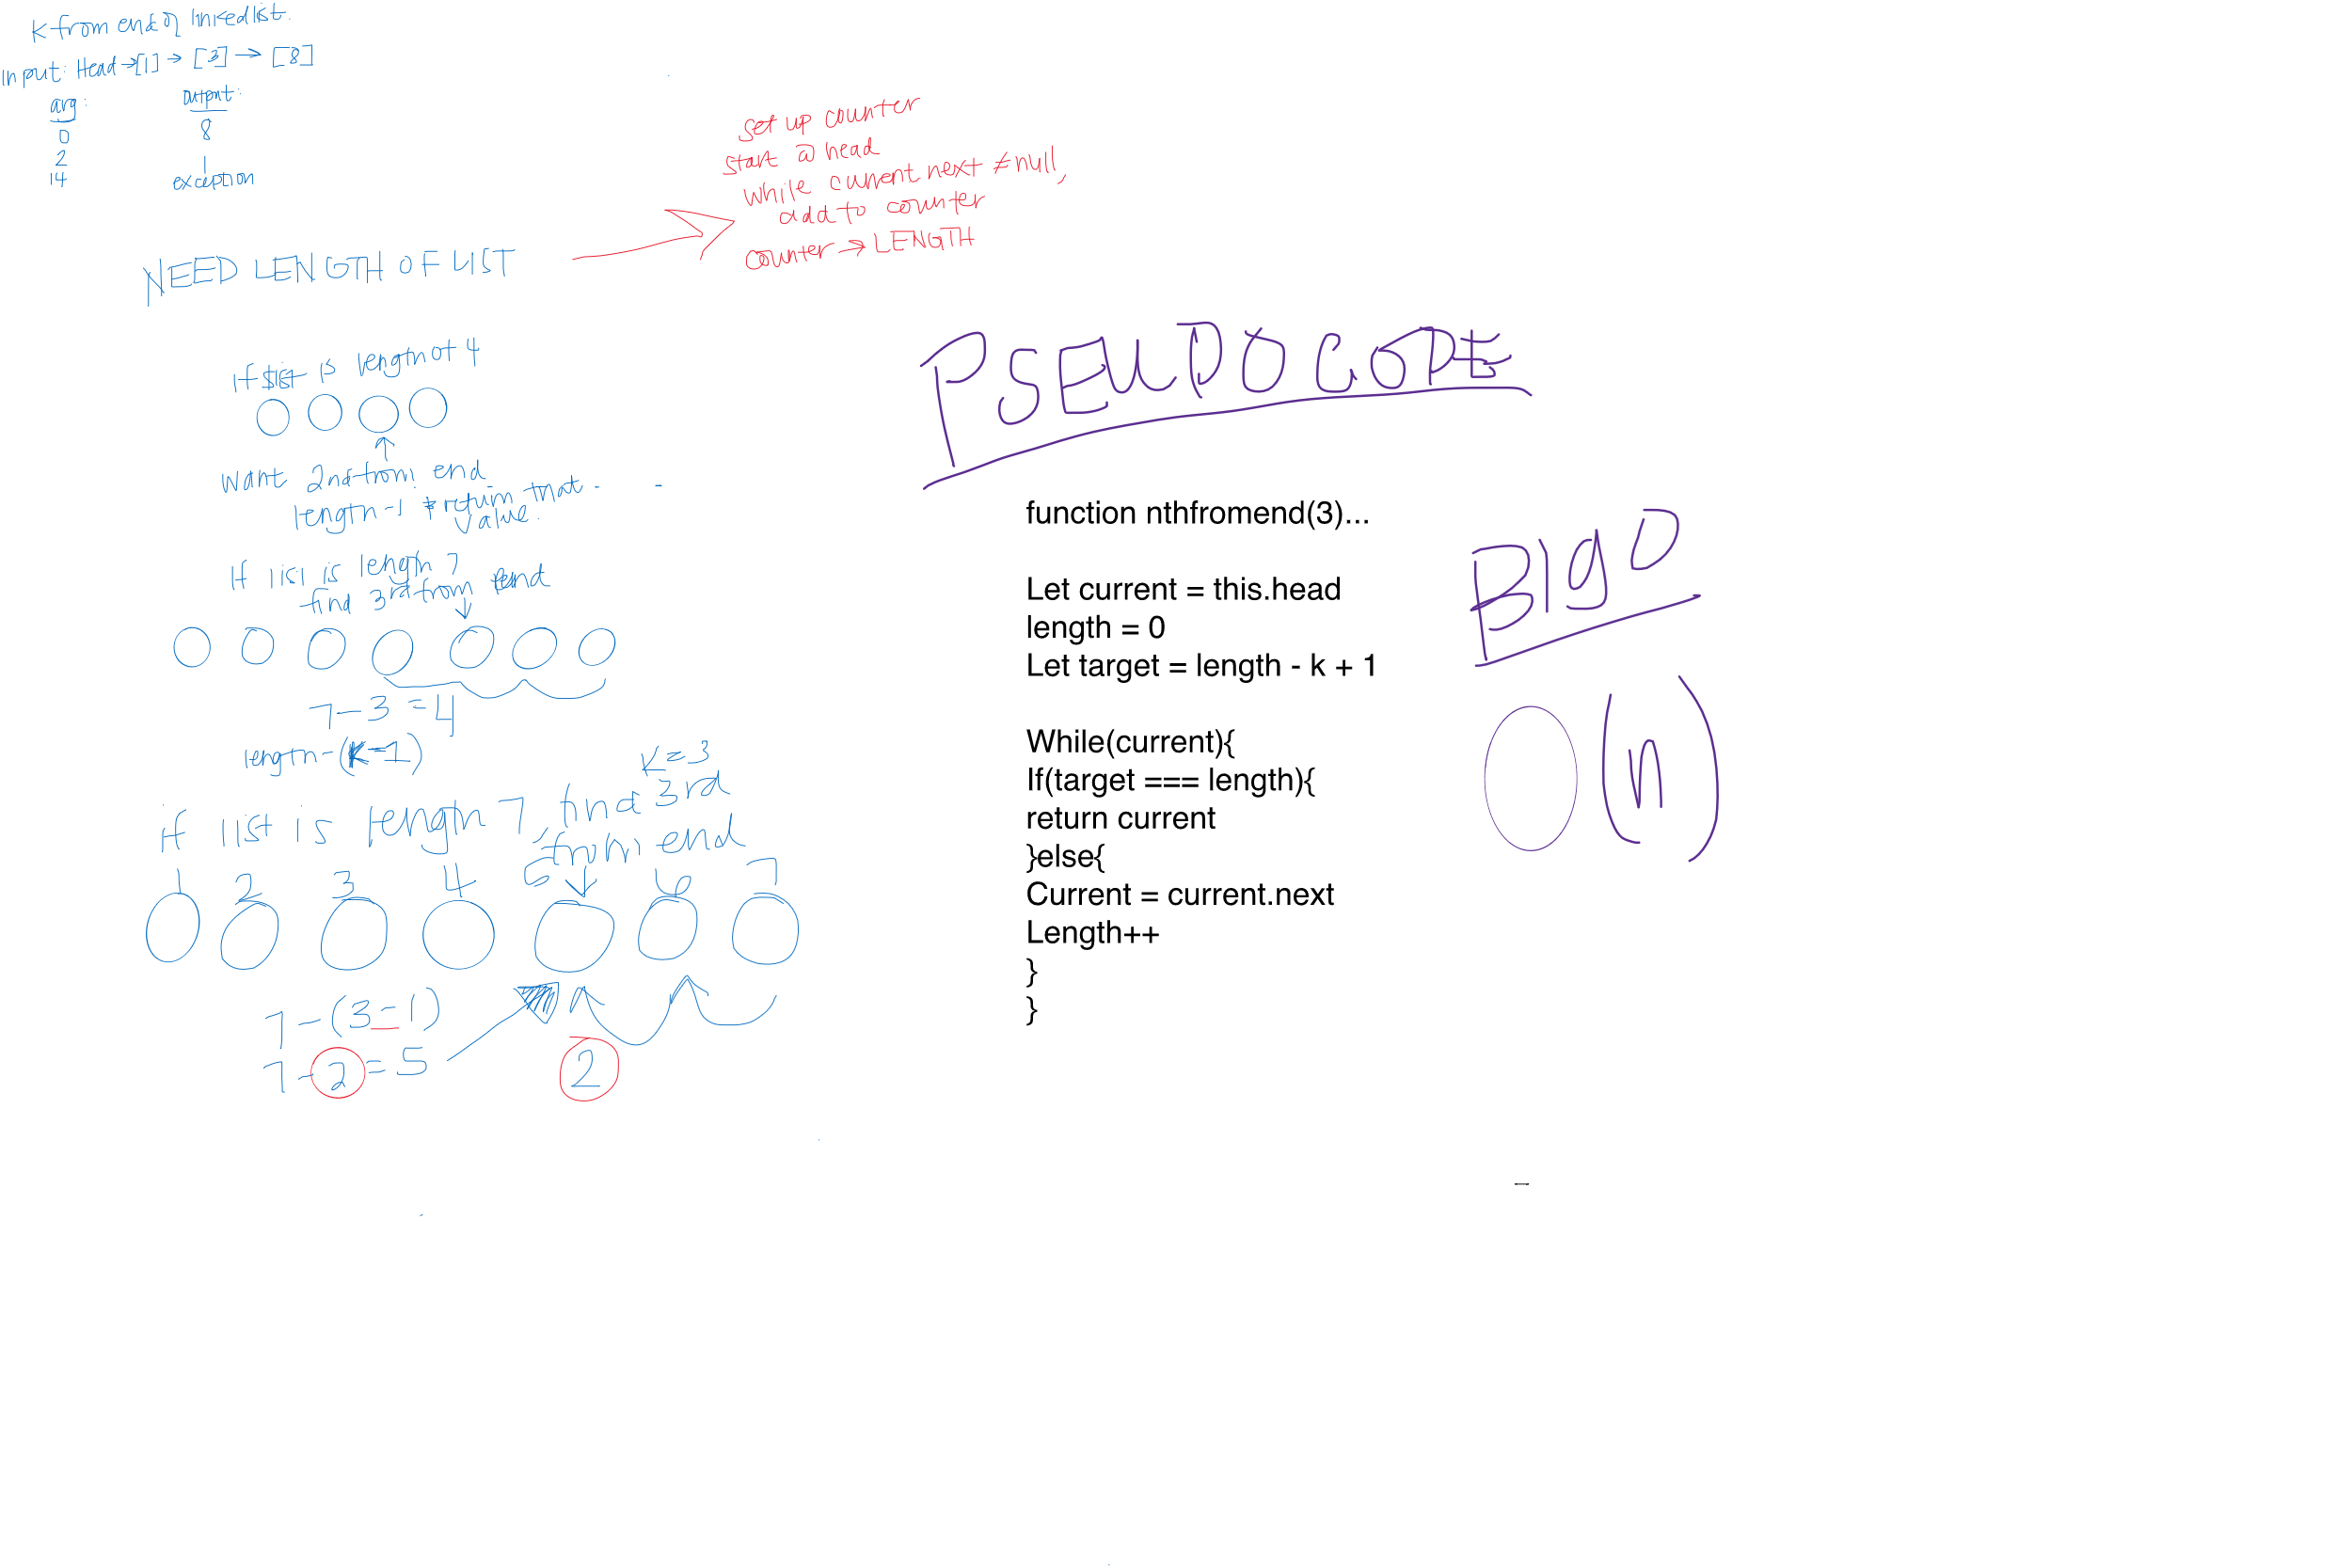 K from end of linked list.
Input: Head → [1] → [3] → [8]
arg: output:
0 8
2 1
14 exception
NEED LENGTH OF LIST
set up counter
start @ head
while current next ≠ null,
add to counter
counter → LENGTH
if list is length of 4
want 2nd from end
length -1 & return that
value.
If list is length 7
find 3rd from end
7-3=4
length-(k-1)
K=3
if list is length 7, find 3rd
from end
1 2 3 4 5 6 7
7-(3-1)
7-2=5
2
PSEUDOCODE
function nthfromend(3)...
Let current = this.head
length = 0
Let target = length - k + 1
While(current){
If(target === length){
return current
}else{
Current = current.next
Length++
}
}
BIg O
O(n)